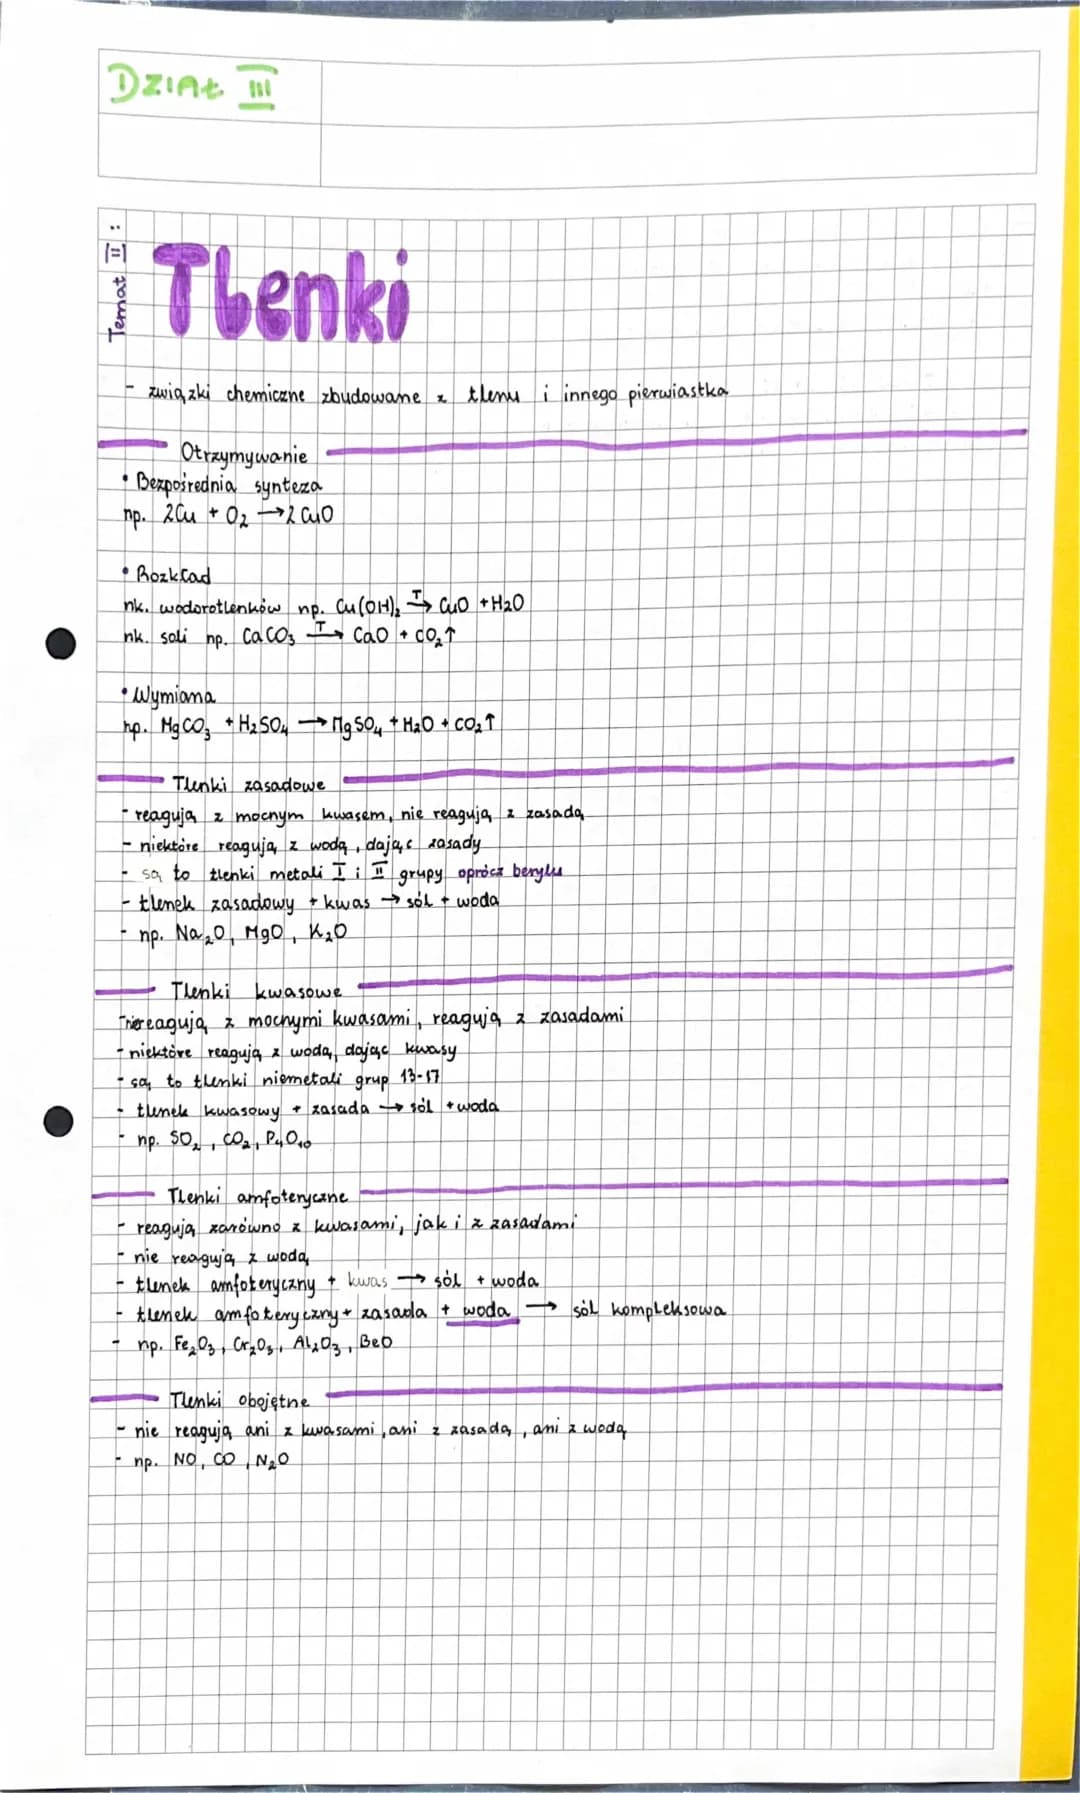 DZIAŁ III
Temat II:
Tlenki
- związki chemiczne zbudowane z tlenu i innego pierwiastka
Otrzymywanie
• Bezpośrednia synteza
np. 2Cu + O₂ → 2CuO
• Rozkład
nk. wodorotlenków np. Cu(OH)₂ T→ CuO + H₂O
nk. soli np. CaCO₃ T→ CaO + CO₂↑
• Wymiana
np. MgCO₃ + H₂SO₄ → MgSO₄ + H₂O + CO₂↑
Tlenki zasadowe
- reagują z mocnym kwasem, nie reagują z zasadą
- niektóre reagują z wodą, dając zasady
- są to tlenki metali I i II grupy oprócz berylu
- tlenek zasadowy + kwas → sól + woda
- np. Na₂O, MgO, K₂O
Tlenki kwasowe
- nie reagują z mocnymi kwasami, reagują z zasadami
- niektóre reagują z wodą, dając kwasy
- są to tlenki niemetali grup 13-17
- tlenek kwasowy + zasada → sól + woda
- np. SO₂, CO₂, P₄O₁₀
Tlenki amfoteryczne
- reagują zarówno z kwasami, jak i z zasadami
- nie reagują z wodą
- tlenek amfoteryczny + kwas → sól + woda
- tlenek amfoteryczny + zasada + woda → sól kompleksowa
- np. Fe₂O₃, Cr₂O₃, Al₂O₃, BeO
Tlenki obojętne
- nie reagują ani z kwasami, ani z zasadą, ani z wodą
- np. NO, CO, N₂O